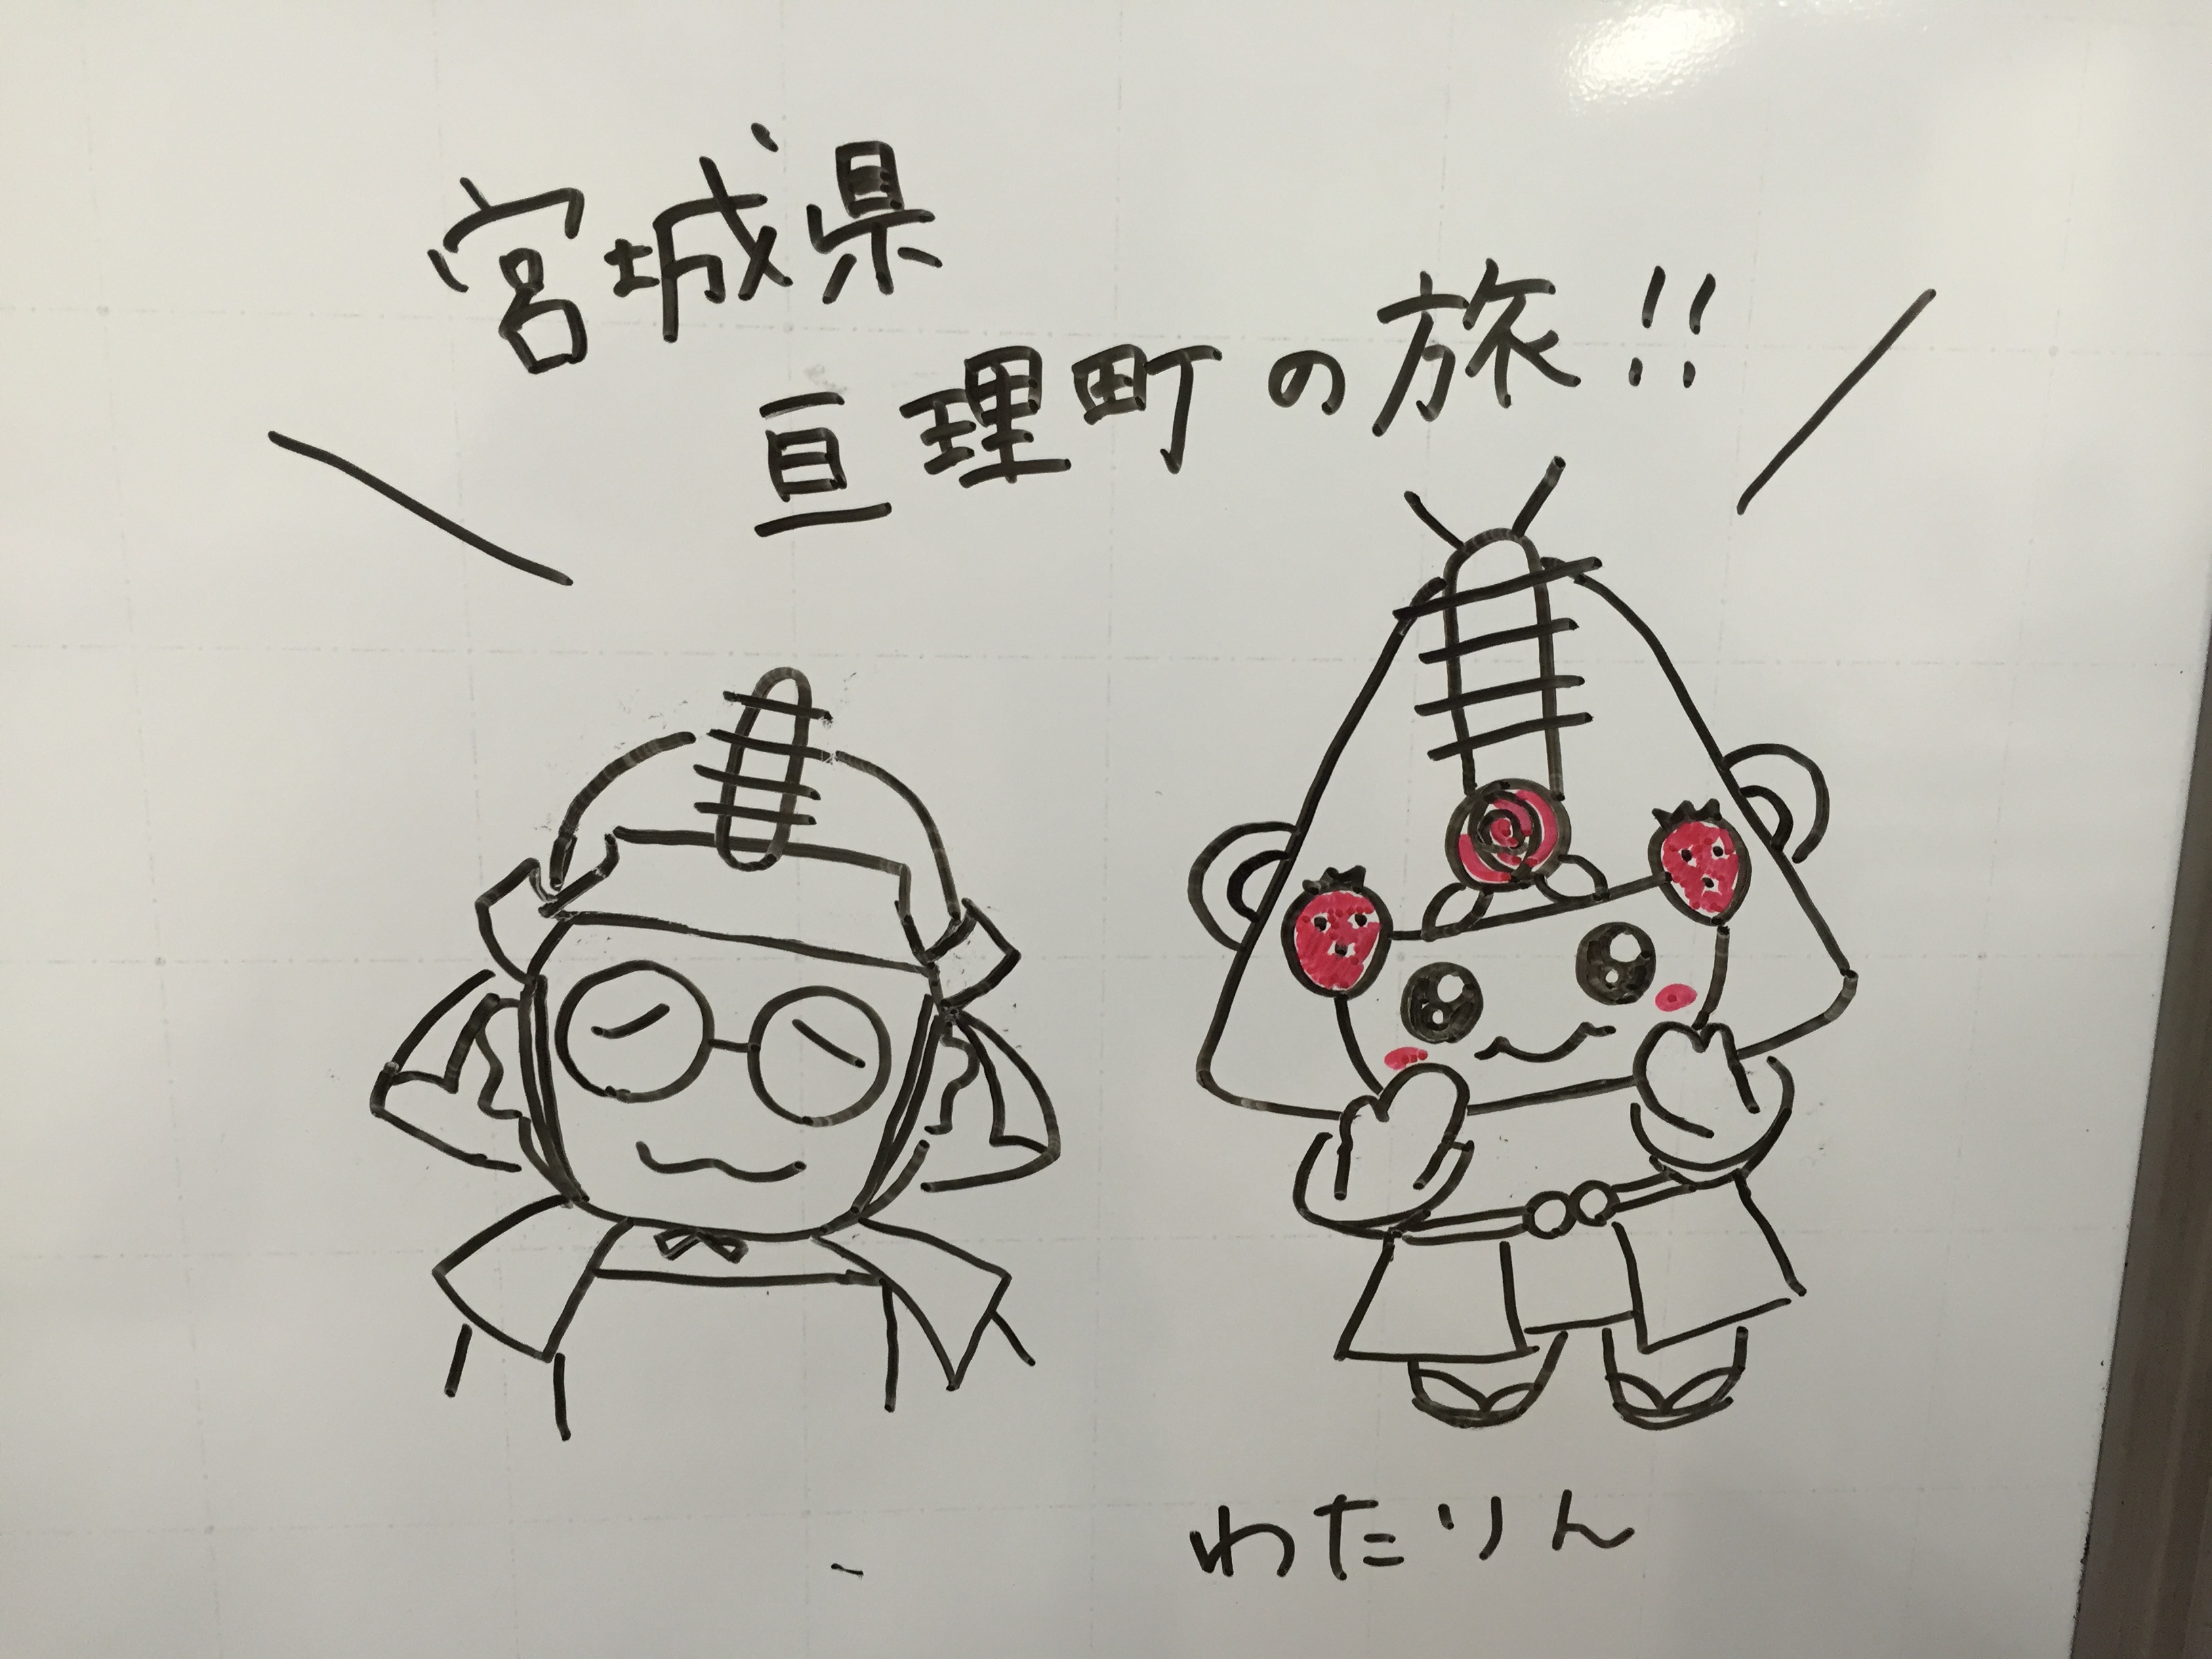 宮城県
亘理町の旅!!
わたりん